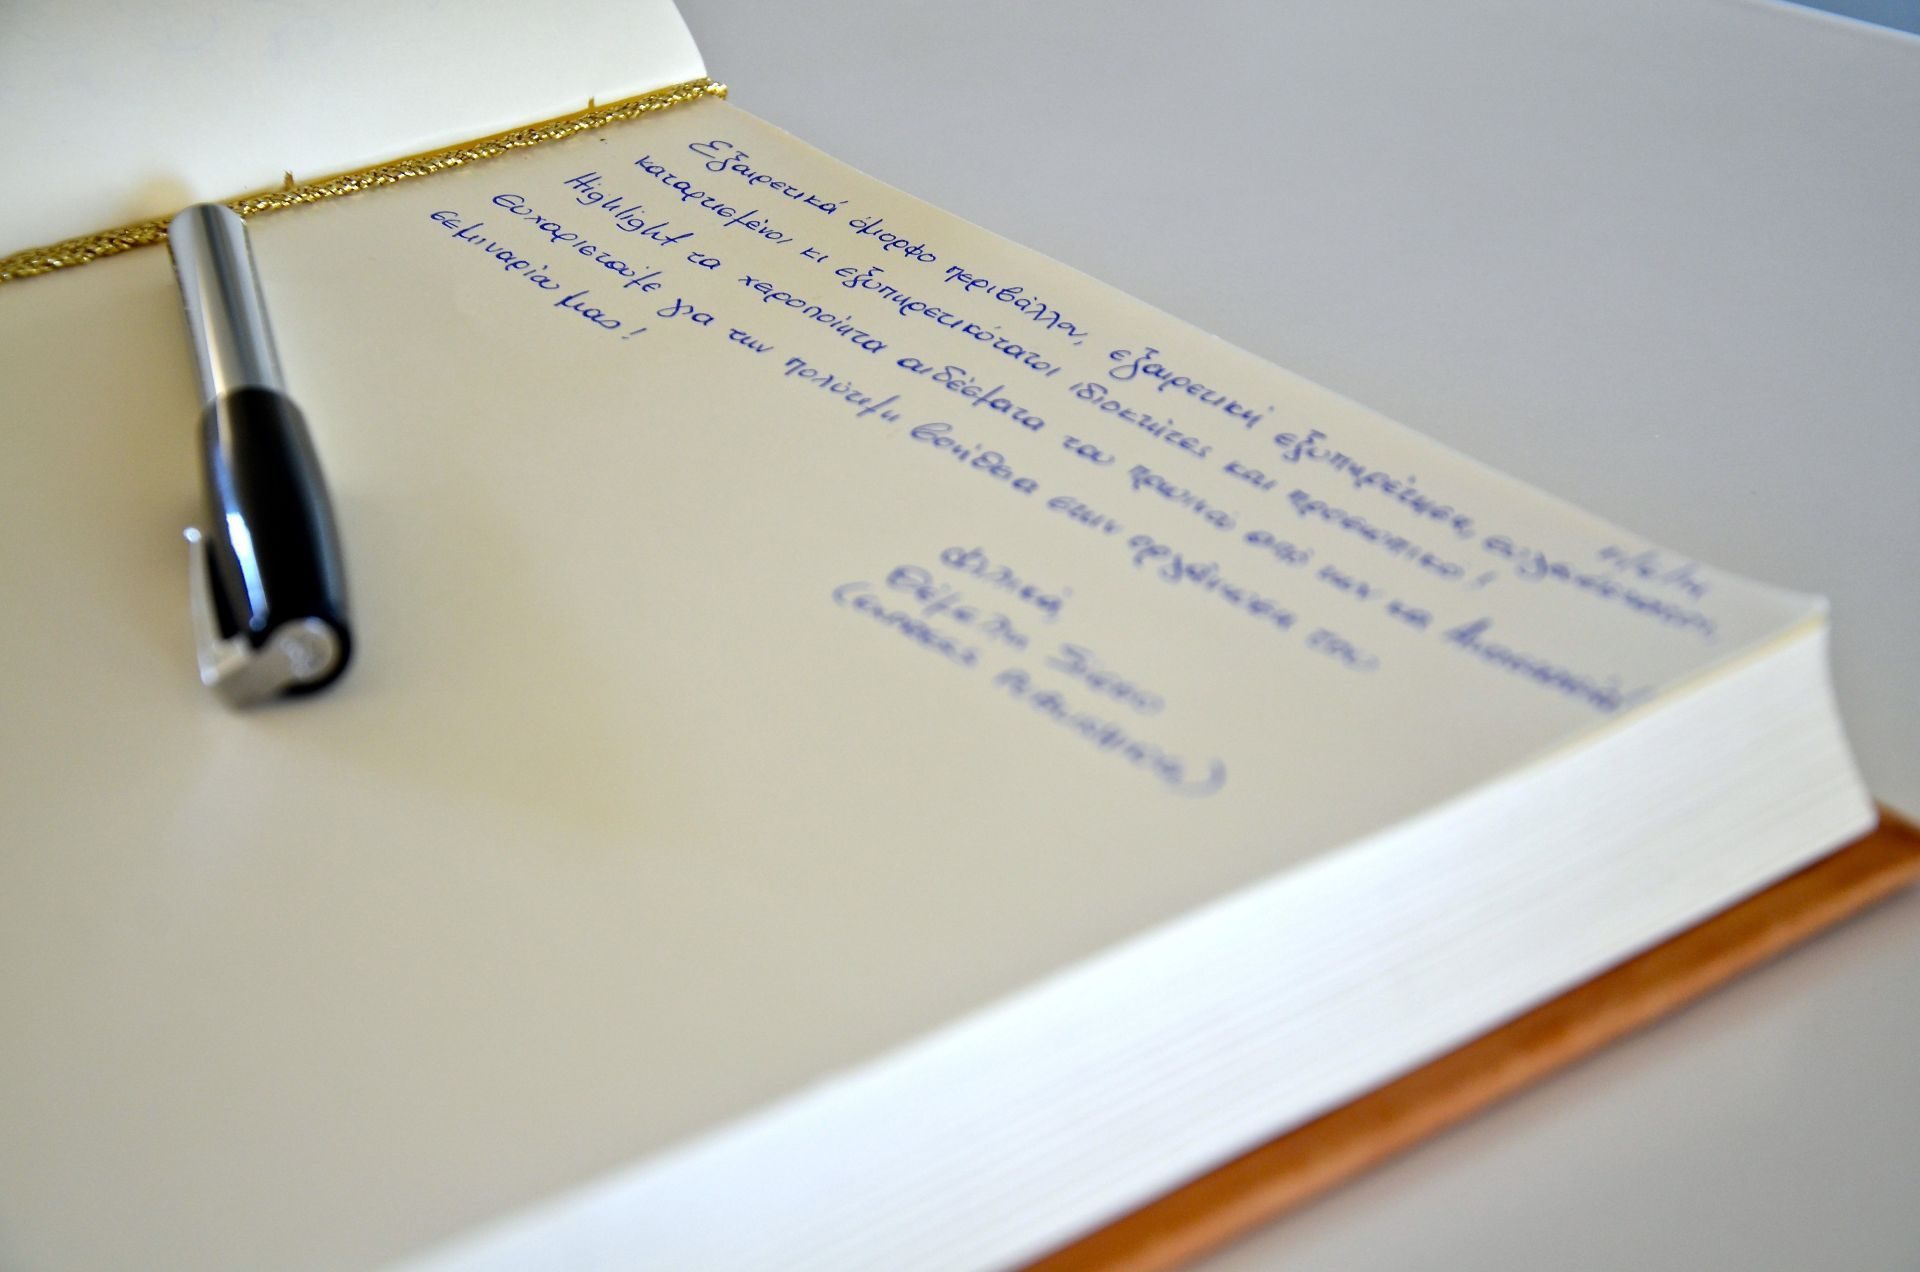 Εξαιρετικά όμορφο περιβάλλον, εξαιρετική εξυπηρέτηση,
καταρτισμένοι κι εξυπηρετικότατοι ιδιοκτήτες και προσωπικό!
Highlight τα χειροποίητα αιδέσματα του πρωινού από την κα
Ευχαριστούμε για την πολύτιμη βοήθεια στην οργάνωση του
σεμιναρίου μας!
Φιλικά,